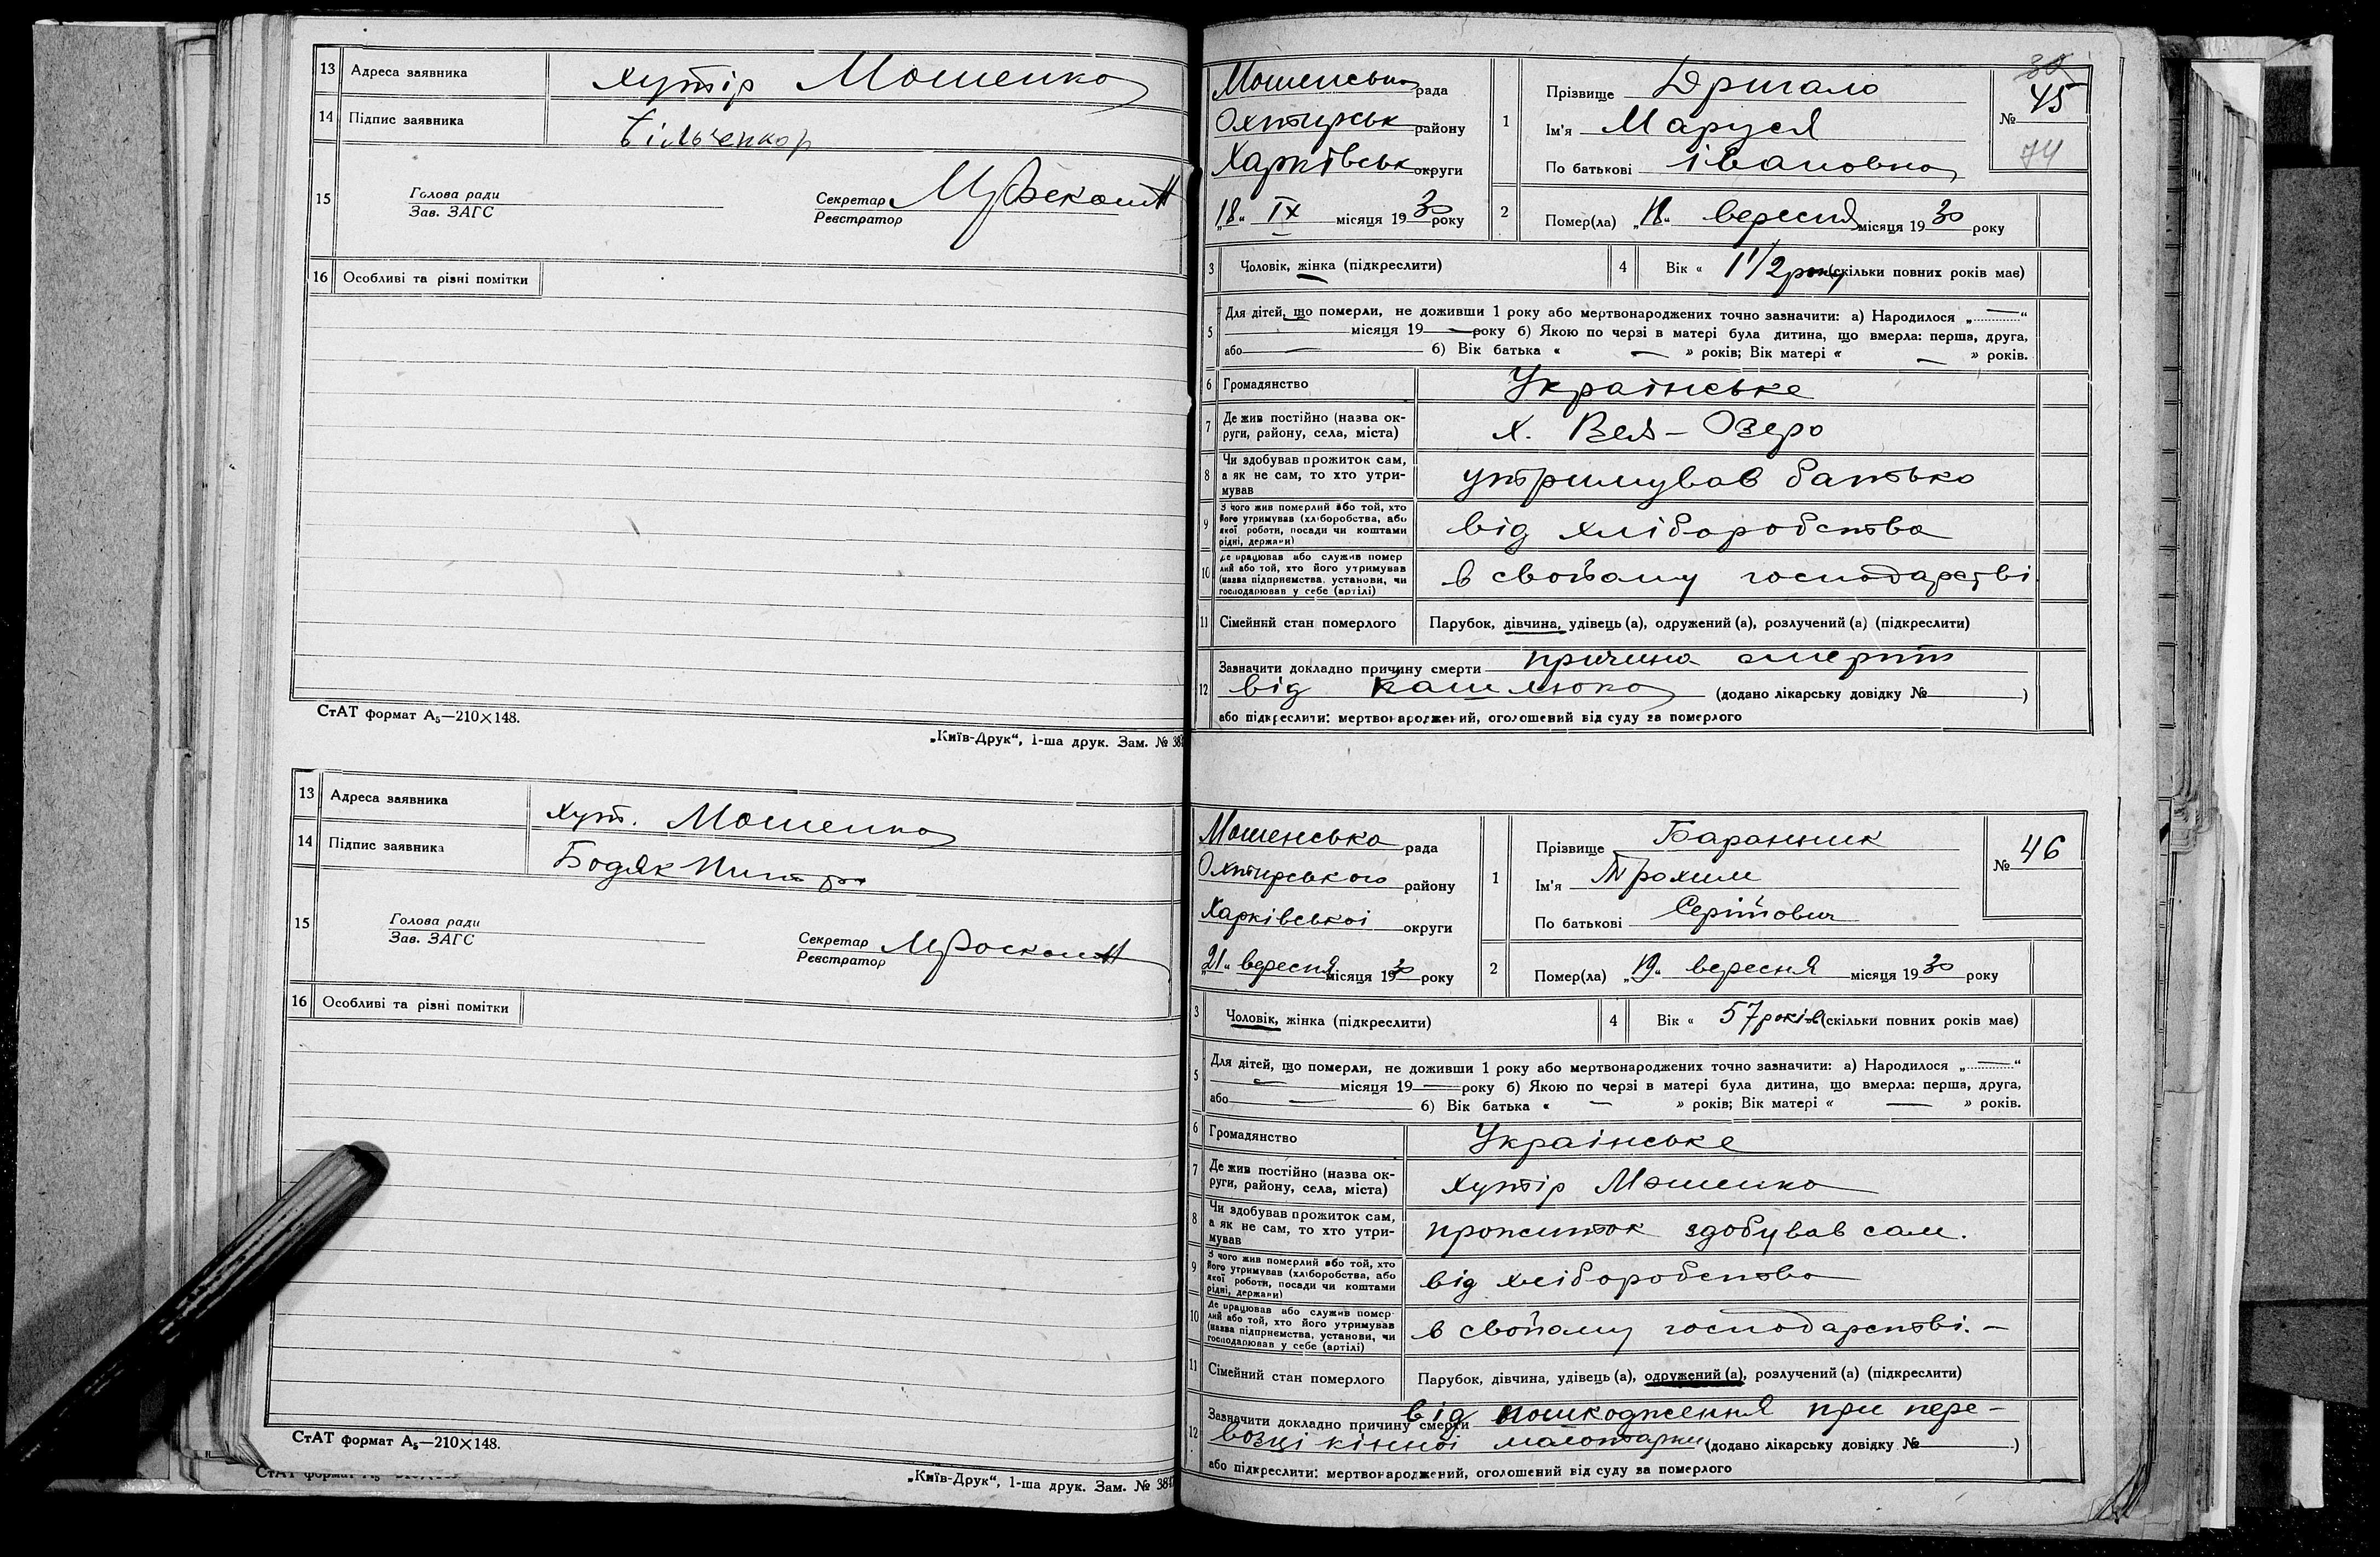 13 Адреса заявника хутір Мошенка
14 Підпис заявника Більченкор
15 Голова ради
Зав. ЗАГС
Секретар
Реєстратор
16 Особливі та різні помітки
СтАТ формат А₅—210×148.
„Київ-Друк“, 1-ша друк. Зам. № 38
13 Адреса заявника Хут. Мошенка
14 Підпис заявника Бодяк
15 Голова ради
Зав. ЗАГС
Секретар
Реєстратор
16 Особливі та різні помітки
СтАТ формат А₅—210×148.
„Київ-Друк“, 1-ша друк. Зам. № 38
Мошенська рада
Охтирськ району
Харківськ округи
„18“ IX місяця 1930 року
1 Прізвище Дригало
Ім'я Маруся
По батькові івановна
№ 45
74
2 Помер(ла) „18“ вересня місяця 1930 року
3 Чоловік, жінка (підкреслити)
4 Вік « 1 1/2 року (скільки повних років має)
5 Для дітей, що померли, не доживши 1 року або мертвонароджених точно зазначити: а) Народилося „—“
— місяця 19— року б) Якою по черзі в матері була дитина, що вмерла: перша, друга,
або — б) Вік батька « — » років; Вік матері « — » років.
6 Громадянство Українське
7 Де жив постійно (назва ок-
руги, району, села, міста) х. Вел-Озеро
8 Чи здобував прожиток сам,
а як не сам, то хто утри-
мував утримував батько
9 З чого жив померлий або той, хто
його утримував (хліборобства, або
якої роботи, посади чи коштами
рідні, держави) від хліборобства
10 Де працював або служив помер
лий або той, хто його утримував
(назва підприємства, установи, чи
господарював у себе (артілі) в свойому господарстві
11 Сімейний стан померлого Парубок, дівчина, удівець (а), одружений (а), розлучений (а) (підкреслити)
12 Зазначити докладно причину смерти причина смерти
від кашлюка (додано лікарську довідку № )
або підкреслити: мертвонароджений, оголошений від суду за померлого
Мошенська рада
Охтирського району
Харківськоі округи
„21“ вересня місяця 1930 року
1 Прізвище Баранник
Ім'я Трохим
По батькові Сергійович
№ 46
2 Помер(ла) „19“ вересня місяця 1930 року
3 Чоловік, жінка (підкреслити)
4 Вік « 57 років (скільки повних років має)
5 Для дітей, що померли, не доживши 1 року або мертвонароджених точно зазначити: а) Народилося „—“
— місяця 19— року б) Якою по черзі в матері була дитина, що вмерла: перша, друга,
або — б) Вік батька « — » років; Вік матері « — » років.
6 Громадянство Українське
7 Де жив постійно (назва ок-
руги, району, села, міста) хутір Мошенка
8 Чи здобував прожиток сам,
а як не сам, то хто утри-
мував прожиток здобував сам.
9 З чого жив померлий або той, хто
його утримував (хліборобства, або
якої роботи, посади чи коштами
рідні, держави) від хліборобства
10 Де працював або служив помер
лий або той, хто його утримував
(назва підприємства, установи, чи
господарював у себе (артілі) в свойому господарстві. —
11 Сімейний стан померлого Парубок, дівчина, удівець (а), одружений (а), розлучений (а) (підкреслити)
12 Зазначити докладно причину смерти від пошкодження при пере-
возці кінноі молотарки (додано лікарську довідку № )
або підкреслити: мертвонароджений, оголошений від суду за померлого